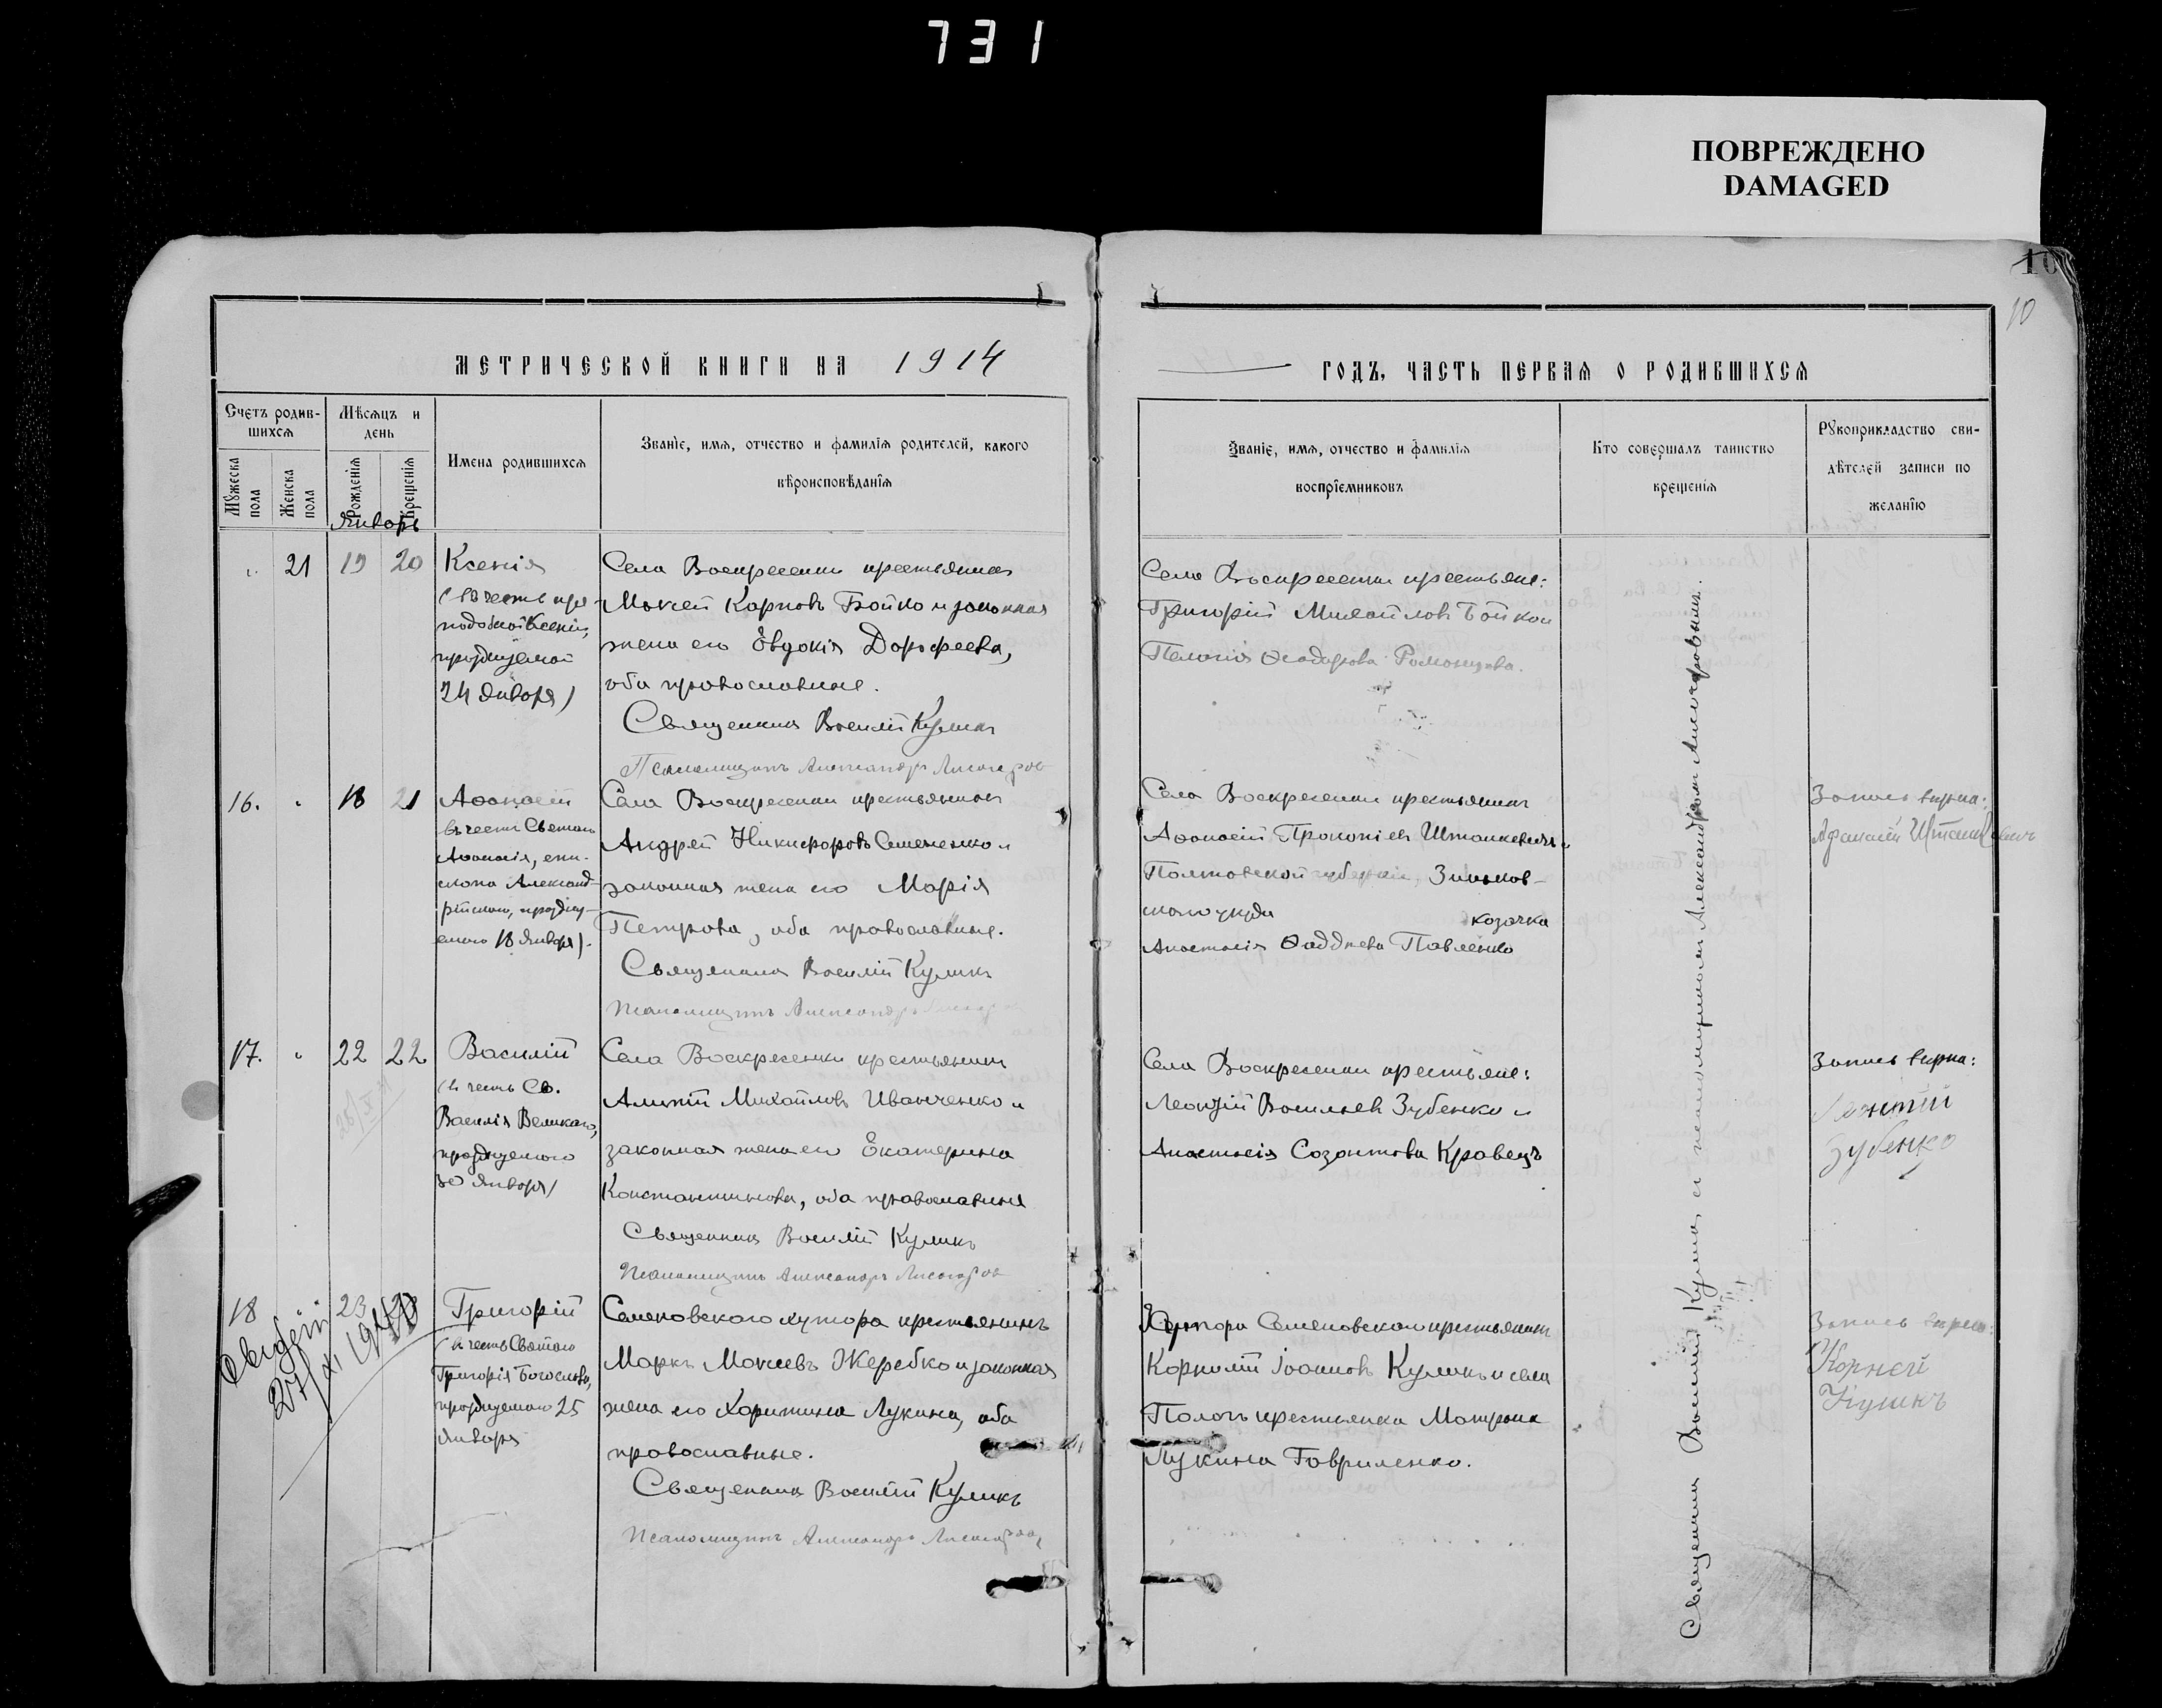 731
ПОВРЕЖДЕНО
DAMAGED
10
10
МЕТРИЧЕСКОЙ КНИГИ НА 1914
ГОДЪ, ЧАСТЬ ПЕРВАЯ О РОДИВШИХСЯ
Счетъ родив-
шихся
Мѣсяцъ и
день
Мужеска
пола
Женска
пола
Рожденія
Крещенія
Имена родившихся
Званіе, имя, отчество и фамилія родителей, какого
вѣроисповѣданія
Званіе, имя, отчество и фамилія
воспріемниковъ
Кто совершалъ таинство
крещенія
Рукоприкладство сви-
дѣтелей записи по
желанію
Январь
21 19 20
Ксенія
(въ честь пре
подобной Ксеніи,
празднуемой
24 января)
Села Воскресенки крестьянинъ
Мокей Карповъ Бойко и законная
жена его Евдокія Дорофеева,
оба православные.
Священникъ Василій Куликъ
Псаломщикъ Александръ Лисогоров
Села Воскресенки крестьяне:
Григорій Михайловъ Бойко и
Пелагія Ѳеодорова Романцова.
16. 18 21
Аѳанасій
въ честь Святого
Аѳанасія, епи-
скопа Александ-
рійскаго, праздну-
емаго 18 января).
Села Воскресенки крестьянинъ
Андрей Никифоровъ Семененко и
законная жена его Марія
Петрова, оба православные.
Священникъ Василій Куликъ
Псаломщикъ Александръ
Села Воскресенки крестьянинъ
Аѳанасій Прокопіевъ Штанкевичъ и
Полтавской губерніи, Зиньков-
скаго уезда козачка
Анастасія Ѳаддеева Павленко
Запись верна:
Афанасій Штанкевич
17. 22 22
Василій
(въ честь Св.
Василія Великаго,
празднуемаго
30 января)
Села Воскресенки крестьянинъ
Алипій Михайловъ Иванченко и
законная жена его Екатерина
Константинова, оба православные
Священникъ Василій Куликъ
Псаломщикъ Александръ Лисогоров
Села Воскресенки крестьяне:
Леонтій Васильевъ Зубенко и
Анастасія Созонтова Кравецъ
Запись верна:
Леонтій
Зубенко
18 23
27/XI 1940
Григорій
(въ честь Святого
Григорія Богослова,
празднуемаго 25
января
Семеновского хутора крестьянинъ
Маркъ Мокіевъ Жеребко и законная
жена его Харитина Лукина, оба
православные.
Священникъ Василій Куликъ
Псаломщикъ Александръ Лисогоров
Хутора Семеновского крестьянинъ
Корнилій Іоанновъ Куликъ и села
Пологъ крестьянка Матрона
Лукина Гавриленко.
Запись верна:
Корней
Куликъ
Священникъ Василій Куликъ съ псаломщикомъ Александромъ Лисогоровымъ.